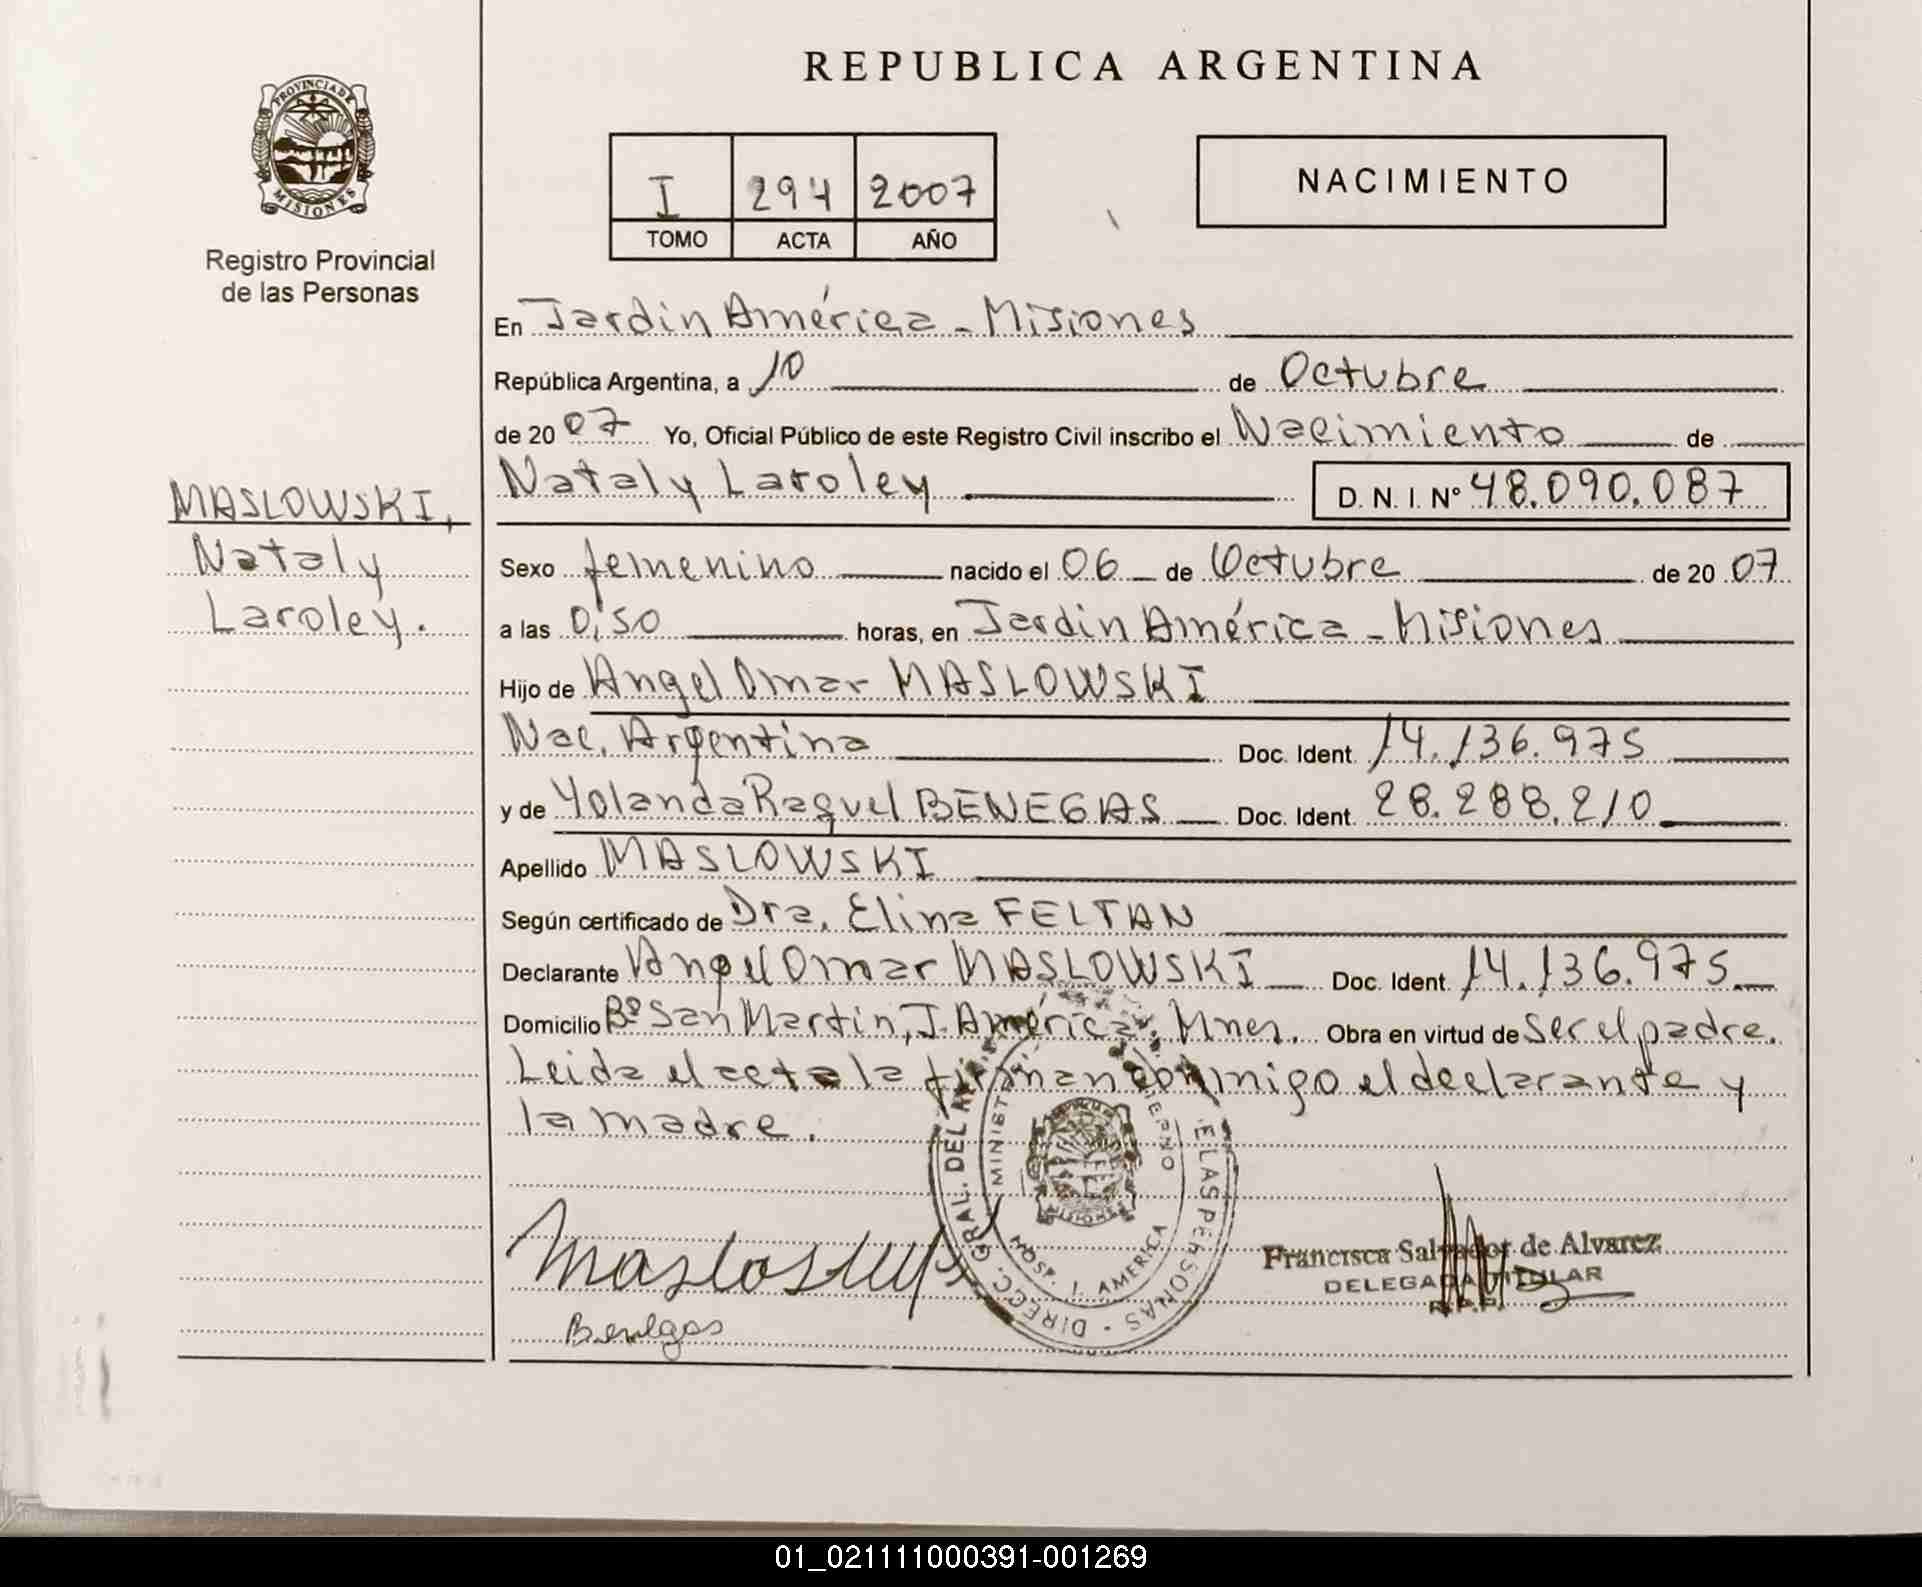 REPUBLICA ARGENTINA
PROVINCIA DE
MISIONES
Registro Provincial
de las Personas
I 294 2007
TOMO ACTA AÑO
NACIMIENTO
En Jardin América - Misiones
República Argentina, a 10 de Octubre
de 20 07 Yo, Oficial Público de este Registro Civil inscribo el Nacimiento de
Nataly Laroley D. N. I. N° 48.090.087
MASLOWSKI,
Nataly
Laroley.
Sexo femenino nacido el 06 de Octubre de 20 07
a las 0,50 horas, en Jardin América - Misiones
Hijo de Angel Omar MASLOWSKI
Nac. Argentina Doc. Ident. 14.136.975
y de Yolanda Raquel BENEGAS Doc. Ident. 28.288.210
Apellido MASLOWSKI
Según certificado de Dra. Elina FELTAN
Declarante Angel Omar MASLOWSKI Doc. Ident. 14.136.975
Domicilio Bº San Martin, J. América, Mnes. Obra en virtud de ser el padre.
Leida el acta la firman conmigo el declarante y
la madre.
DIRECC. GRAL. DEL ELAS PERSONAS
MISIONES
HOSP. J. AMERICA
Benegas
Francisca Salvador de Alvarez
DELEGADA TITULAR
R.P.P.
01_021111000391-001269